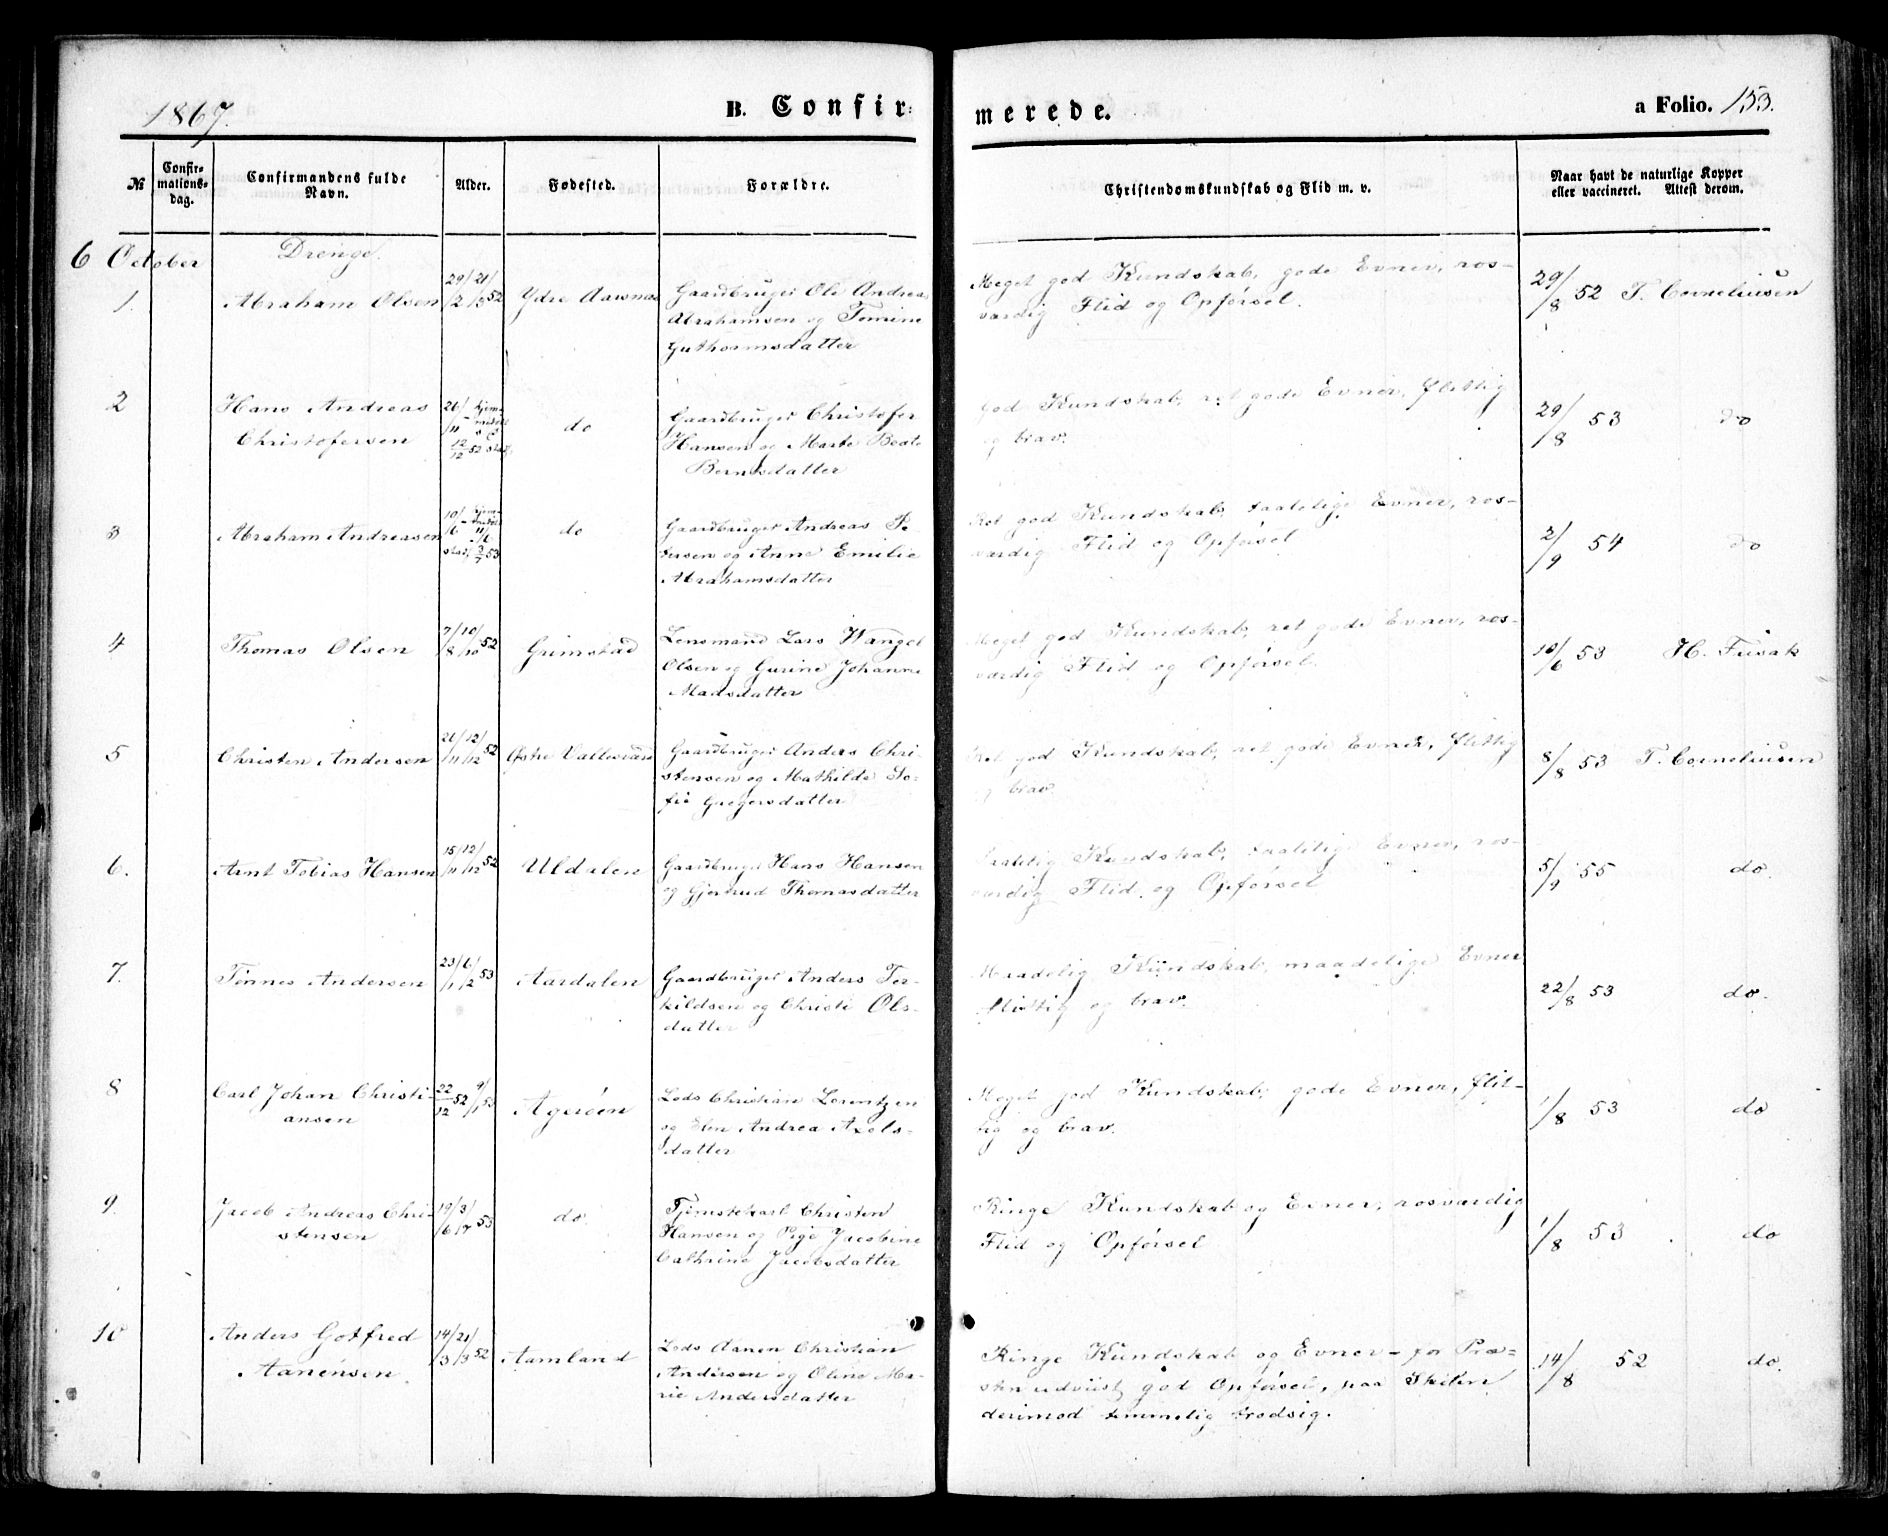 1867.
B. Confir-
merede.
a Folio. 153.
№
Confir-
mations-
dag.
Confirmandens fulde
Navn.
Alder.
Fødested.
Forældre.
Christendomskundskab og Flid m. v.
Naar havt de naturlige Kopper
eller vaccineret. Attest derom.
6 October
Drenge.
1. Abraham Olsen 29/2 21/3 52 Ydre Aawnæs
Gaardbruger Ole Andreas
Abrahamsen og Tomine
Guthormsdatter
Meget god Kundskab, gode Evner, ros-
værdig Flid og Opførsel.
29/8 52 T. Corneliusen
2 Hans Andreas
Christofersen
26/11 hjem-
12/12 52
do
Gaardbruger Christofer
Hansen og Marte Beate
Berntsdatter
God Kundskab, ret gode Evner, flittig
og brav.
29/8 53 do
3 Abraham Andreassen
10/6 hjem-
3/7 53
do
Gaardbruger Andreas Pe-
tersen og Anne Emilie
Abrahamsdatter
Ret god Kundskab, taalelige Evner, ros-
værdig Flid og Opførsel
2/9 54 do
4 Thomas Olsen 7/8 10/10 52 Grimstad
Lensmand Lars Wangel
Olsen og Gurine Johanne
Madsdatter
Meget god Kundskab, ret gode Evner, ros-
værdig Flid og Opførsel.
10/6 53 H. Fuisak
5 Christen Andersen 21/11 12/12 52 Østre Vallesværd
Gaardbruger Anders Chri-
stensen og Mathilde So-
fie Gregersdatter
Ret god Kundskab, ret gode Evner, flittig
og brav.
8/8 53 T. Corneliusen
6. Arnt Tobias Hansen 15/11 12/12 52 Uldalen
Gaardbruger Hans Hansen
og Gjertrud Thomasdatter
Taalelig Kundskab, taalelige Evner, ros-
værdig Flid og Opførsel
5/9 55 do.
7. Tønnes Andersen 23/1 6/2 53 Aardalen
Gaardbruger Anders Ter-
kildsen og Christi Ols-
datter
Maadelig Kundskab, maadelige Evner
flittig og brav.
22/8 53 do.
8 Carl Johan Christi-
ansen
22/12 52 9/1 53 Agerøen
Lods Christian Lorentzen
og Elen Andrea Axels-
datter
Meget god Kundskab, gode Evner, flit-
tig og brav.
1/8 53 do
9. Jacob Andreas Chri-
stensen
19/6 3/7 53 do.
Tjenestekarl Christen
Hansen og Pige Jacobine
Cathrine Jacobsdatter
Ringe Kundskab og Evner, rosværdig
Flid og Opførsel
1/8 53 do
10 Anders Gotfred
Aanensen.
14/3 21/3 52 Aamland
Lods Aanen Christian
Andersen og Oline Ma-
rie Andersdatter
Ringe Kundskab og Evner - for Præ-
sten udviist god Opførsel, paa Skolen
derimod temmelig trodsig.
14/8 52 do.